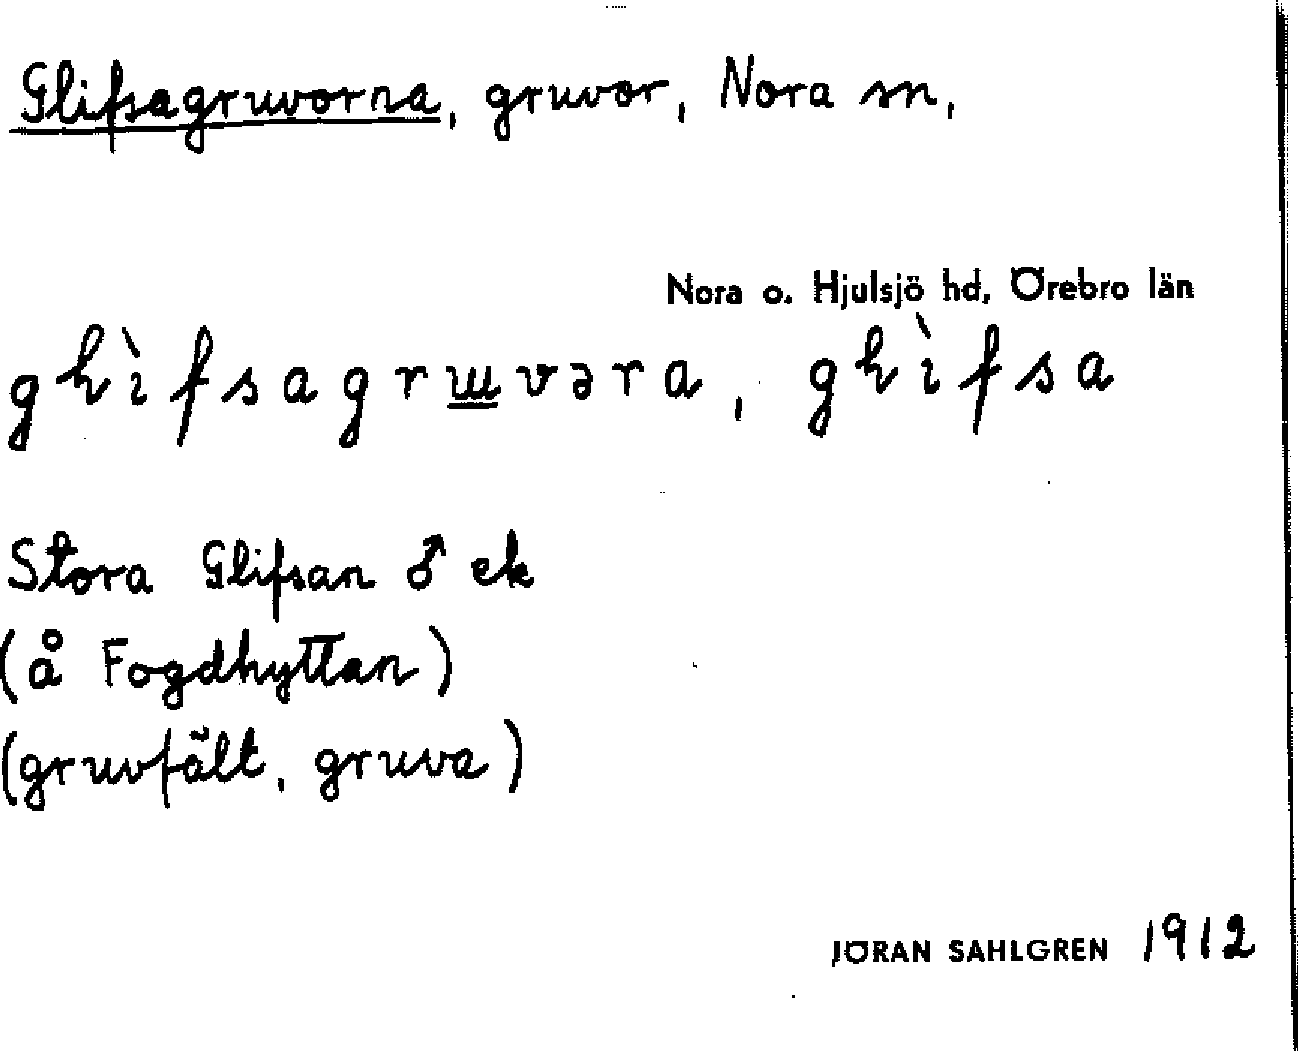 Glifsagruvorna, gruvor, Nora sn,
Nora o. Hjulsjö hd, Örebro län
gƚi̇̀fsagrɯvəra, gƚi̇̀fsa
Stora Glifsan ♂ ek
(å Fogdhyttan)
(gruvfält, gruva)
JÖRAN SAHLGREN 1912